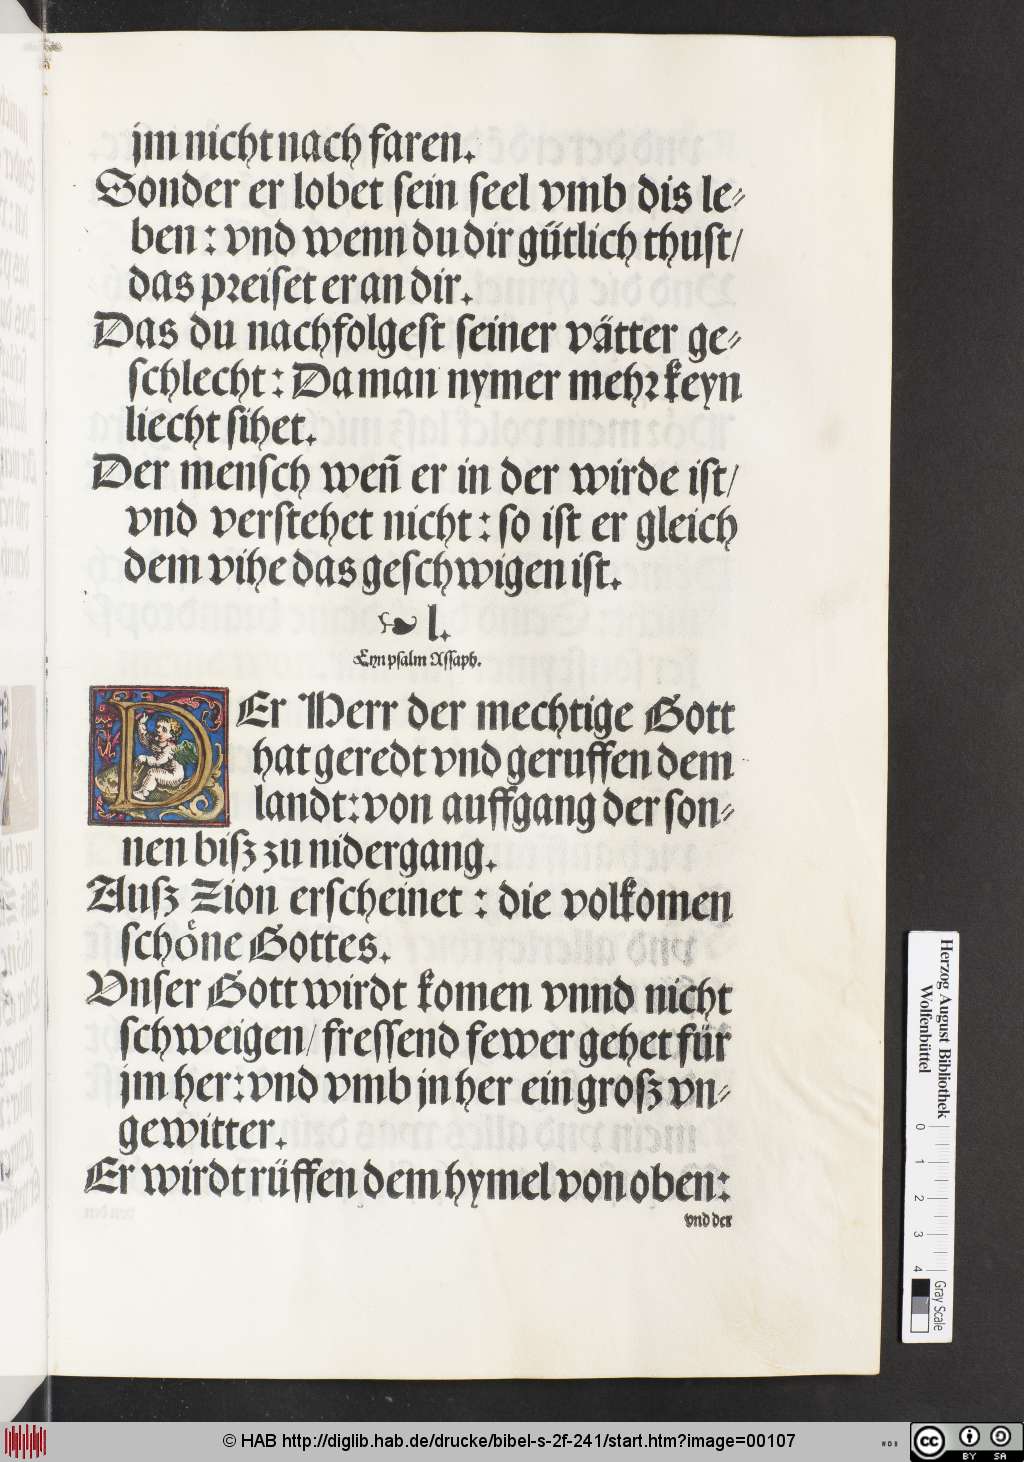 jm nicht nach faren.
Sonder er lobet sein seel vmb dis le⸗
ben : vnd wenn du dir gütlich thust/
das preiset er an dir.
Das du nachfolgest seiner vätter ge⸗
schlecht : Da man nymer mehr keyn
liecht sihet.
Der mensch weñ er in der wirde ist/
vnd verstehet nicht : so ist er gleich
dem vihe das geschwigen ist.
❧ l.
Eyn psalm Assaph.
DEr Herr der mechtige Gott
hat geredt vnd geruffen dem
landt : von auffgang der son⸗
nen bisz zu nidergang.
Ausz Zion erscheinet : die volkomen
schöne Gottes.
Vnser Gott wirdt komen vnnd nicht
schweigen/ fressend fewer gehet für
jm her : vnd vmb jn her ein grosz vn⸗
gewitter.
Er wirdt rüffen dem hymel von oben :
vnd der
Herzog August Bibliothek
Wolfenbüttel
0 1 2 3 4
Gray Scale
© HAB http://diglib.hab.de/drucke/bibel-s-2f-241/start.htm?image=00107
cc BY SA